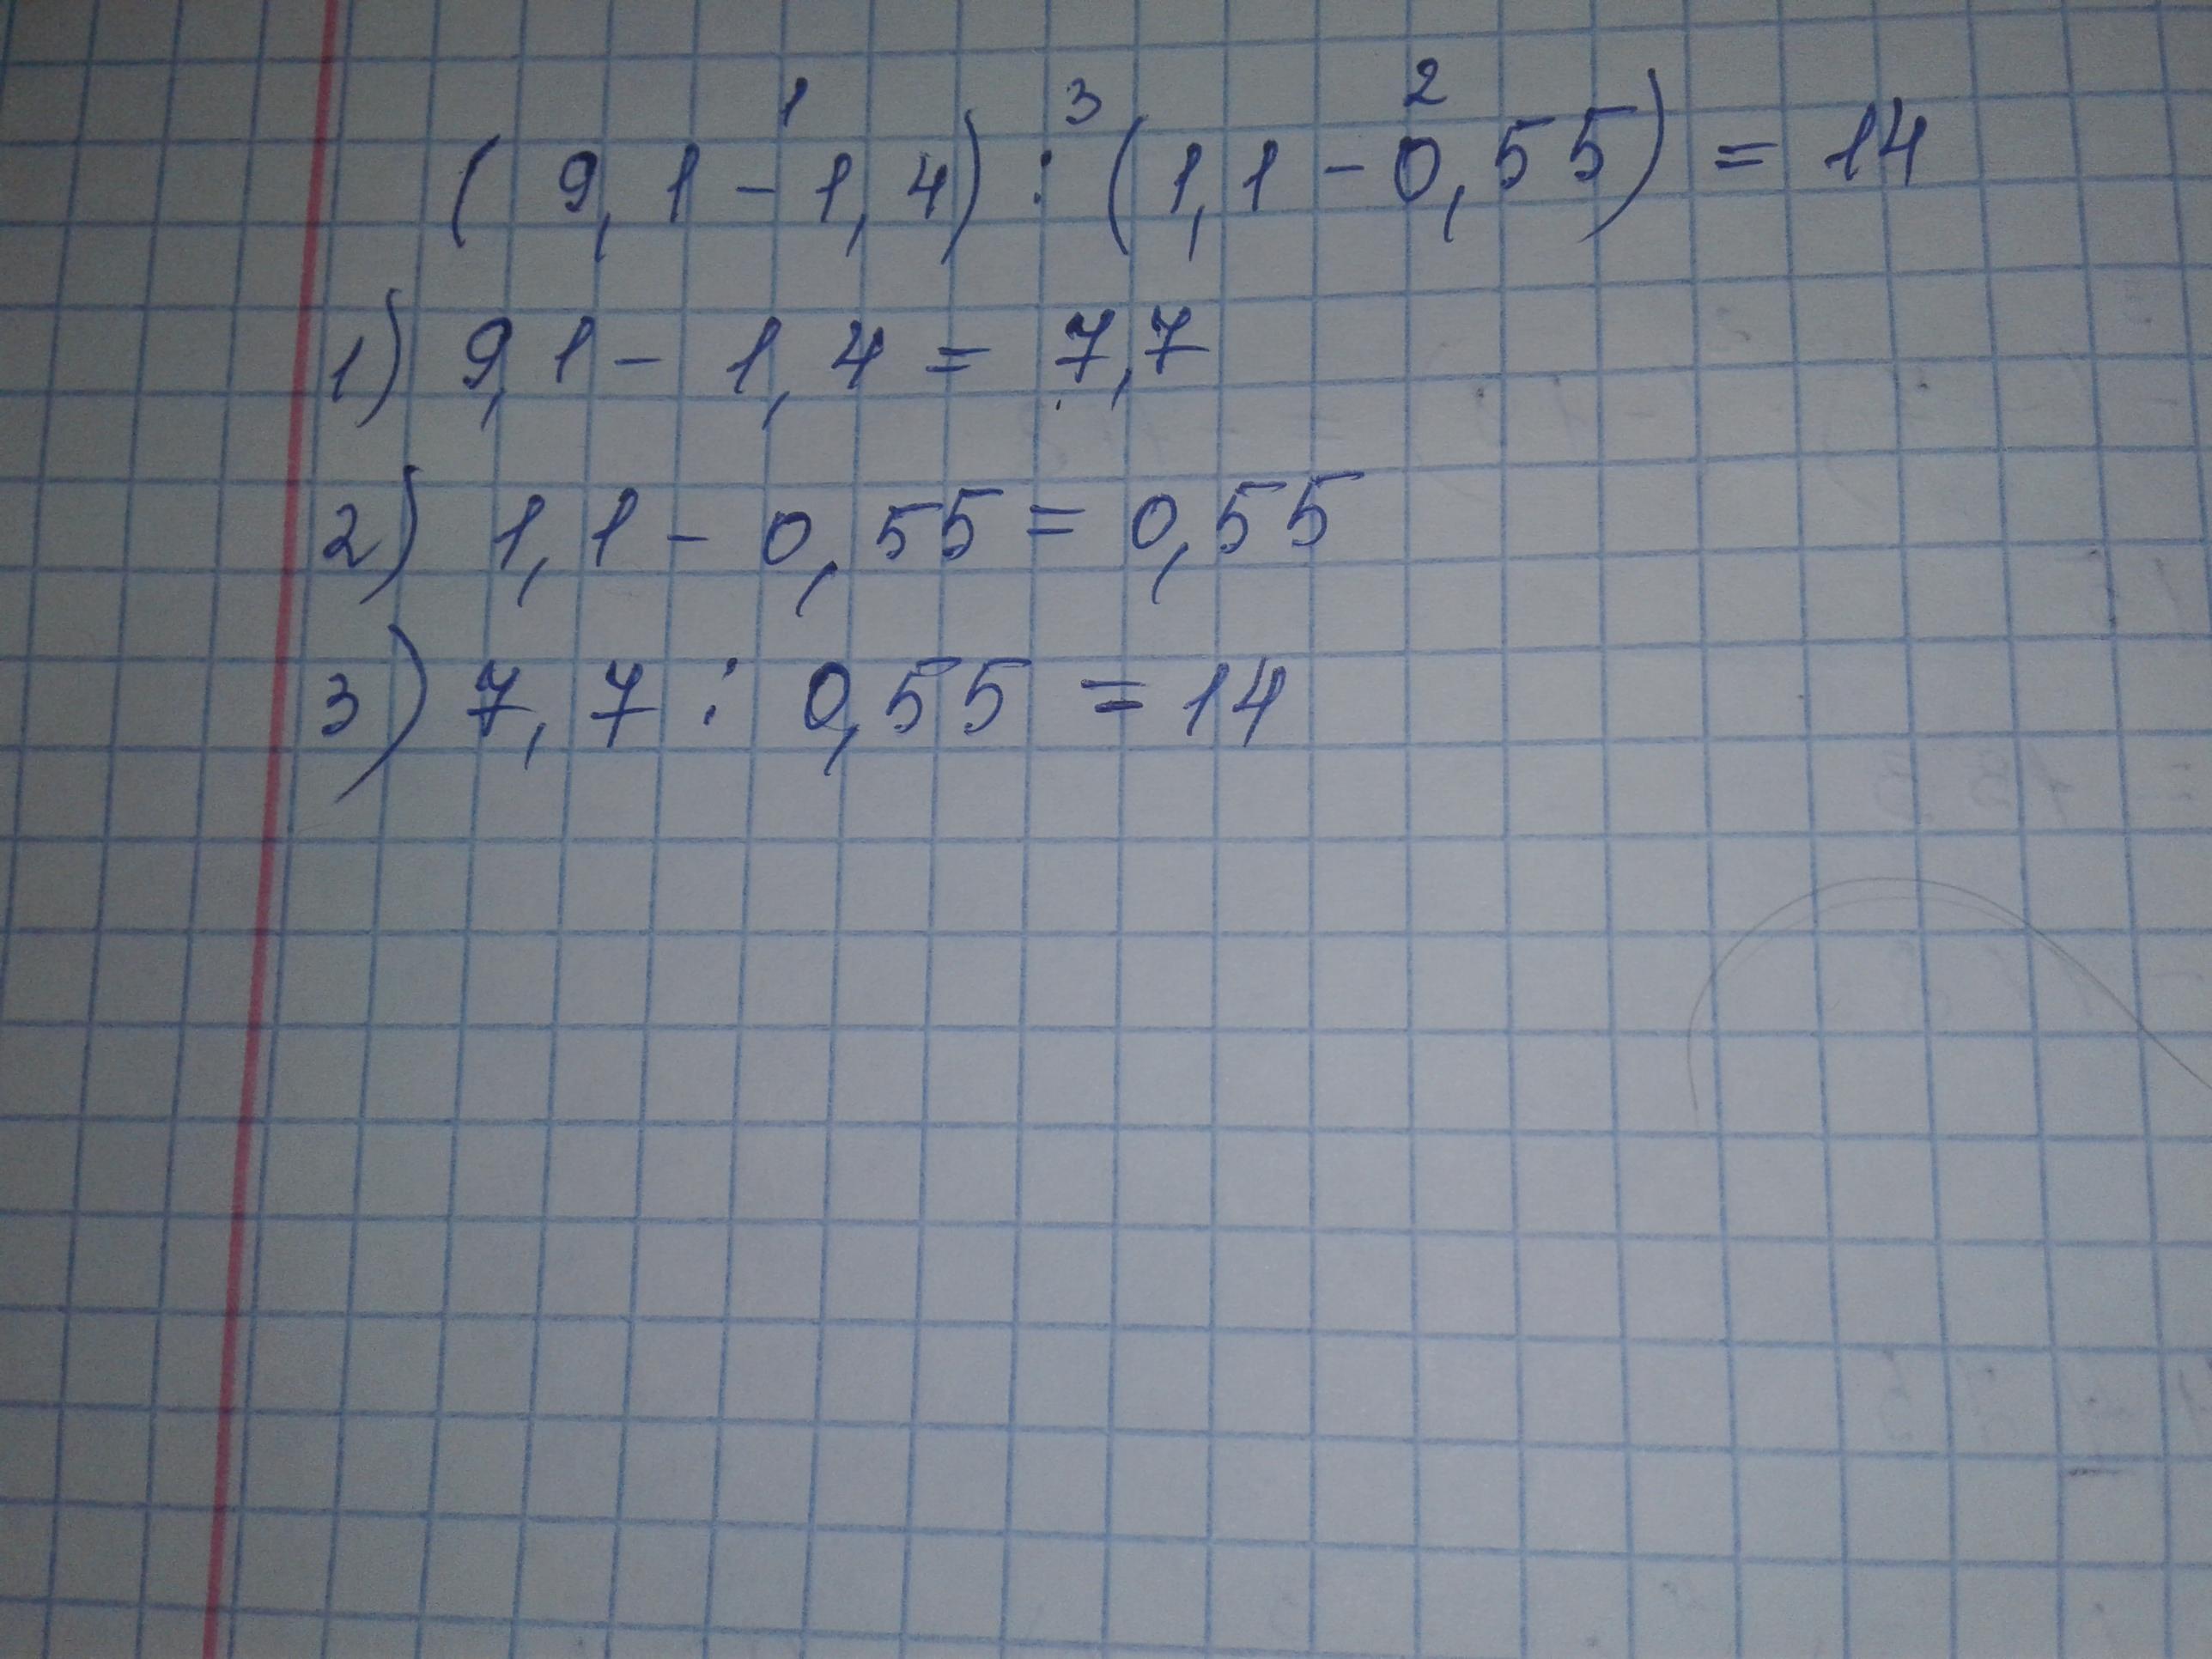 1 3 2
(9,1 - 1,4) : (1,1 - 0,55) = 14
1) 9,1 - 1,4 = 7,7
2) 1,1 - 0,55 = 0,55
3) 7,7 : 0,55 = 14